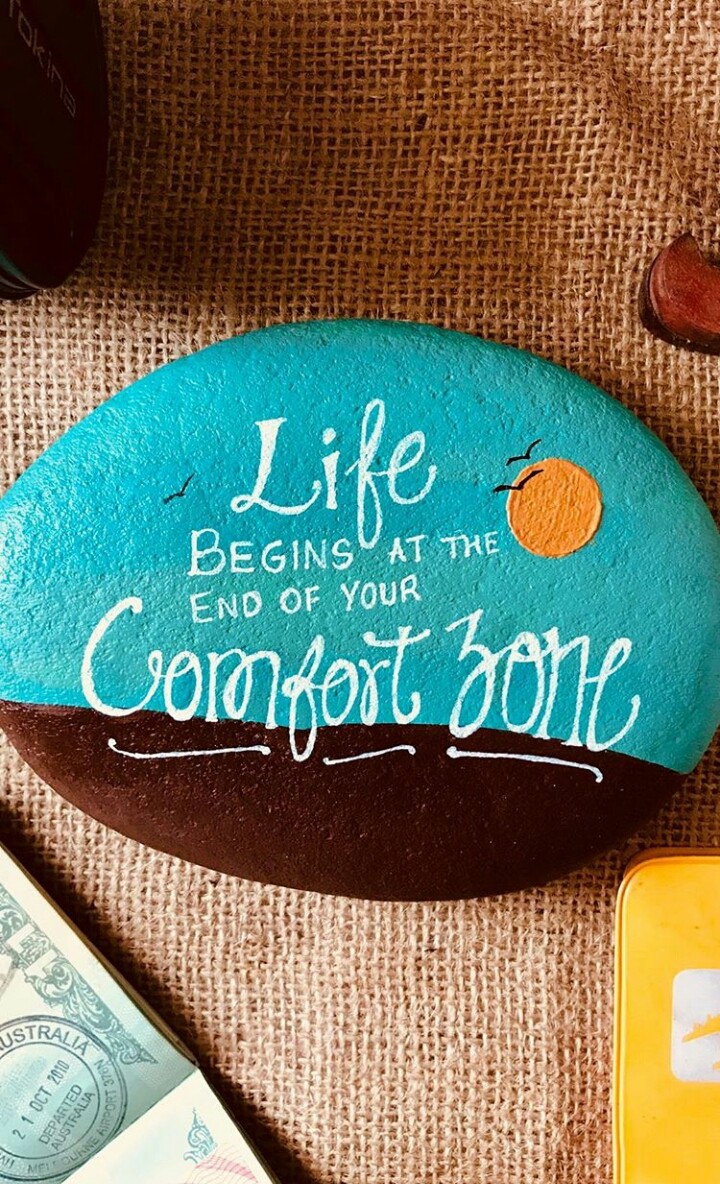 Tokina
Life
BEGINS AT THE
END OF YOUR
Comfort Zone
AUSTRALIA
21 OCT 2010
DEPARTED
AUSTRALIA
MELBOURNE AIRPORT